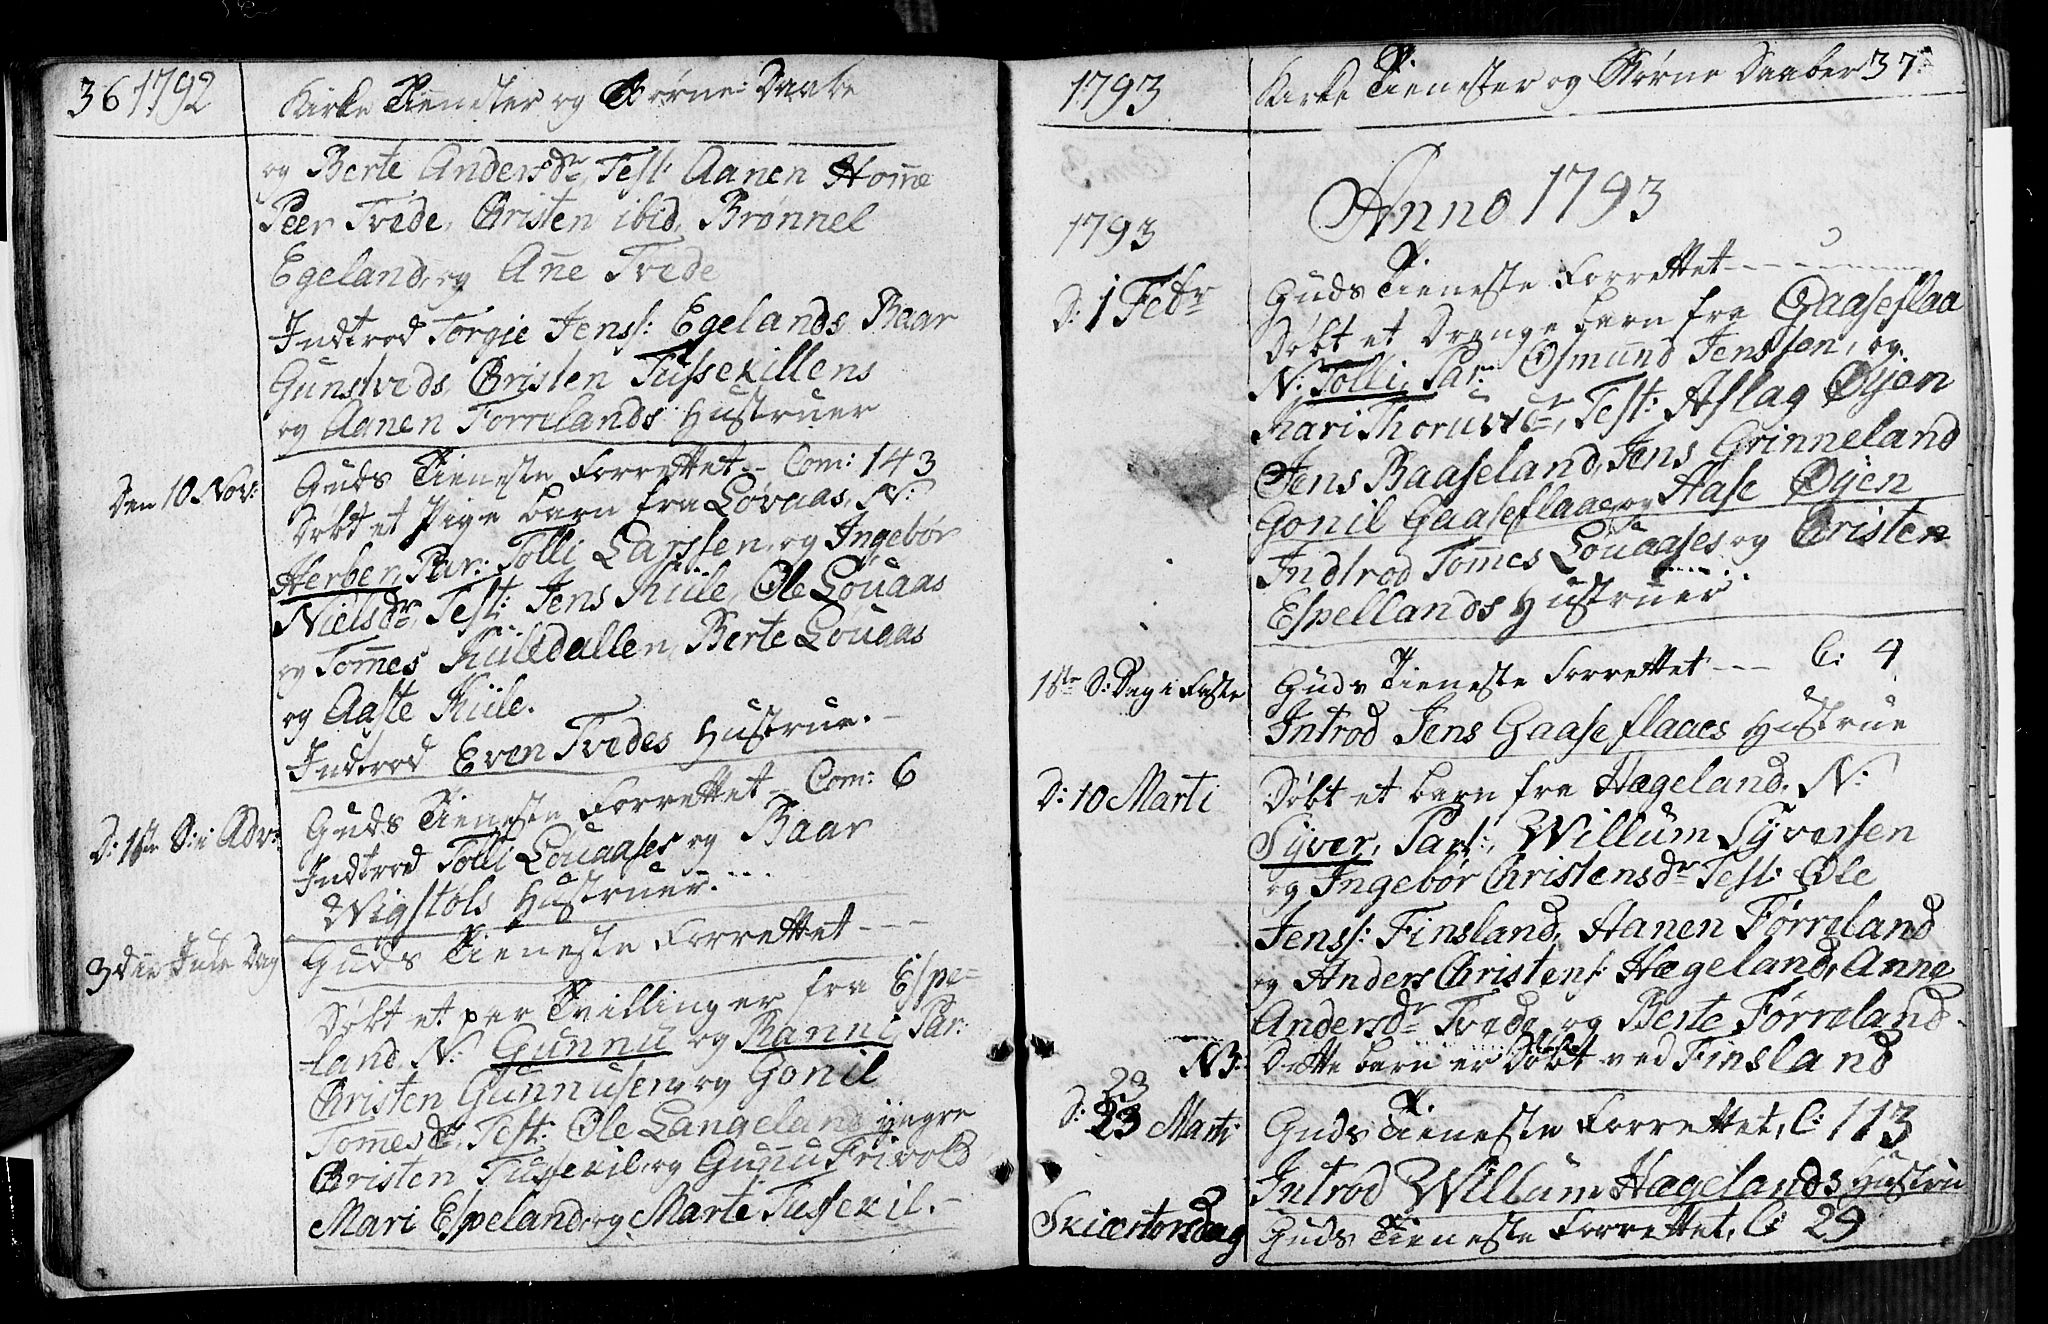 36 1792 Kirke Tienester og Børne: Daabe
og Berte Andersdr, Test: Aanen Home
Peer Tvede, Christen ibid, Brønnel
Egeland, og Ane Tvede
Indtrod Torgie Jenss: Egelands Baar
Gunstveds Christen Tussekillens
og Aanen Forrelands Hustruer
Den 10 Nov: Guds Tieneste Forrettet - Com: 143
Døbt et Pige barn fra Løvaas, N:
Herber, Par: Tolli Larssen, og Ingebør
Nielsdr, Test: Jens Kiile, Ole Løuaas
og Tomes Kuledallen, Berte Løuaas
og Aaste Kiile.
Indtrod Even Tvedes Hustrue.
D: 1ste S: i Adv: Guds Tieneste Forrettet - Com: 6
Indtrod Tolli Løuaases og Baar
Wigstøls Hustruer.
3die Jule Dag Guds Tieneste Forrettet - -
Døbt et per Tvillinger fra Espe-
land, N: Gunnu og Ranni, Par:
Christen Gunnusen, og Gonil
Tomesdr, Test: Ole Langeland yngre
Christen Tussekil, og Gunu Frivold
Mari Espeland, og Marte Tussekil. -
1793 Kirke Tienester og Børne Daaber 37.
Anno 1793
1793
D: 1 Febr Guds Tieneste Forrettet - - -
Døbt et Drenge barn fra Gaaseflaa
N: Tolli, Par: Osmund Jenssen, og
Kari Thorusdr, Test: Aslag Øyen
Jens Baaseland, Jens Grinneland
Gonil Gaaseflaae, og Aase Øyen
Indtrod Tomes Løuaases og Christen
Espellands Hustruer
1ste S: Dag i Faste Guds Tieneste Forrettet - - C: 4
Introd Jens Gaaseflaaes Hustrue
D: 10 Marti Døbt et barn fra Hægeland, N:
Syver, Par:, Willum Syversen
og Ingebør Christensdr Test: Ole
Jenss: Finsland, Aanen Førreland
og Anders Christens: Hægeland, Anne
Andersdr Tvede, og Berte Førreland
NB: Dette barn er Døbt ved Finsland
23
D: 23 Marti Guds Tieneste Forrettet, C: 113
Introd Willum Hægelands Hustru
Skiærtorsdag Guds Tieneste Forrettet, C: 29